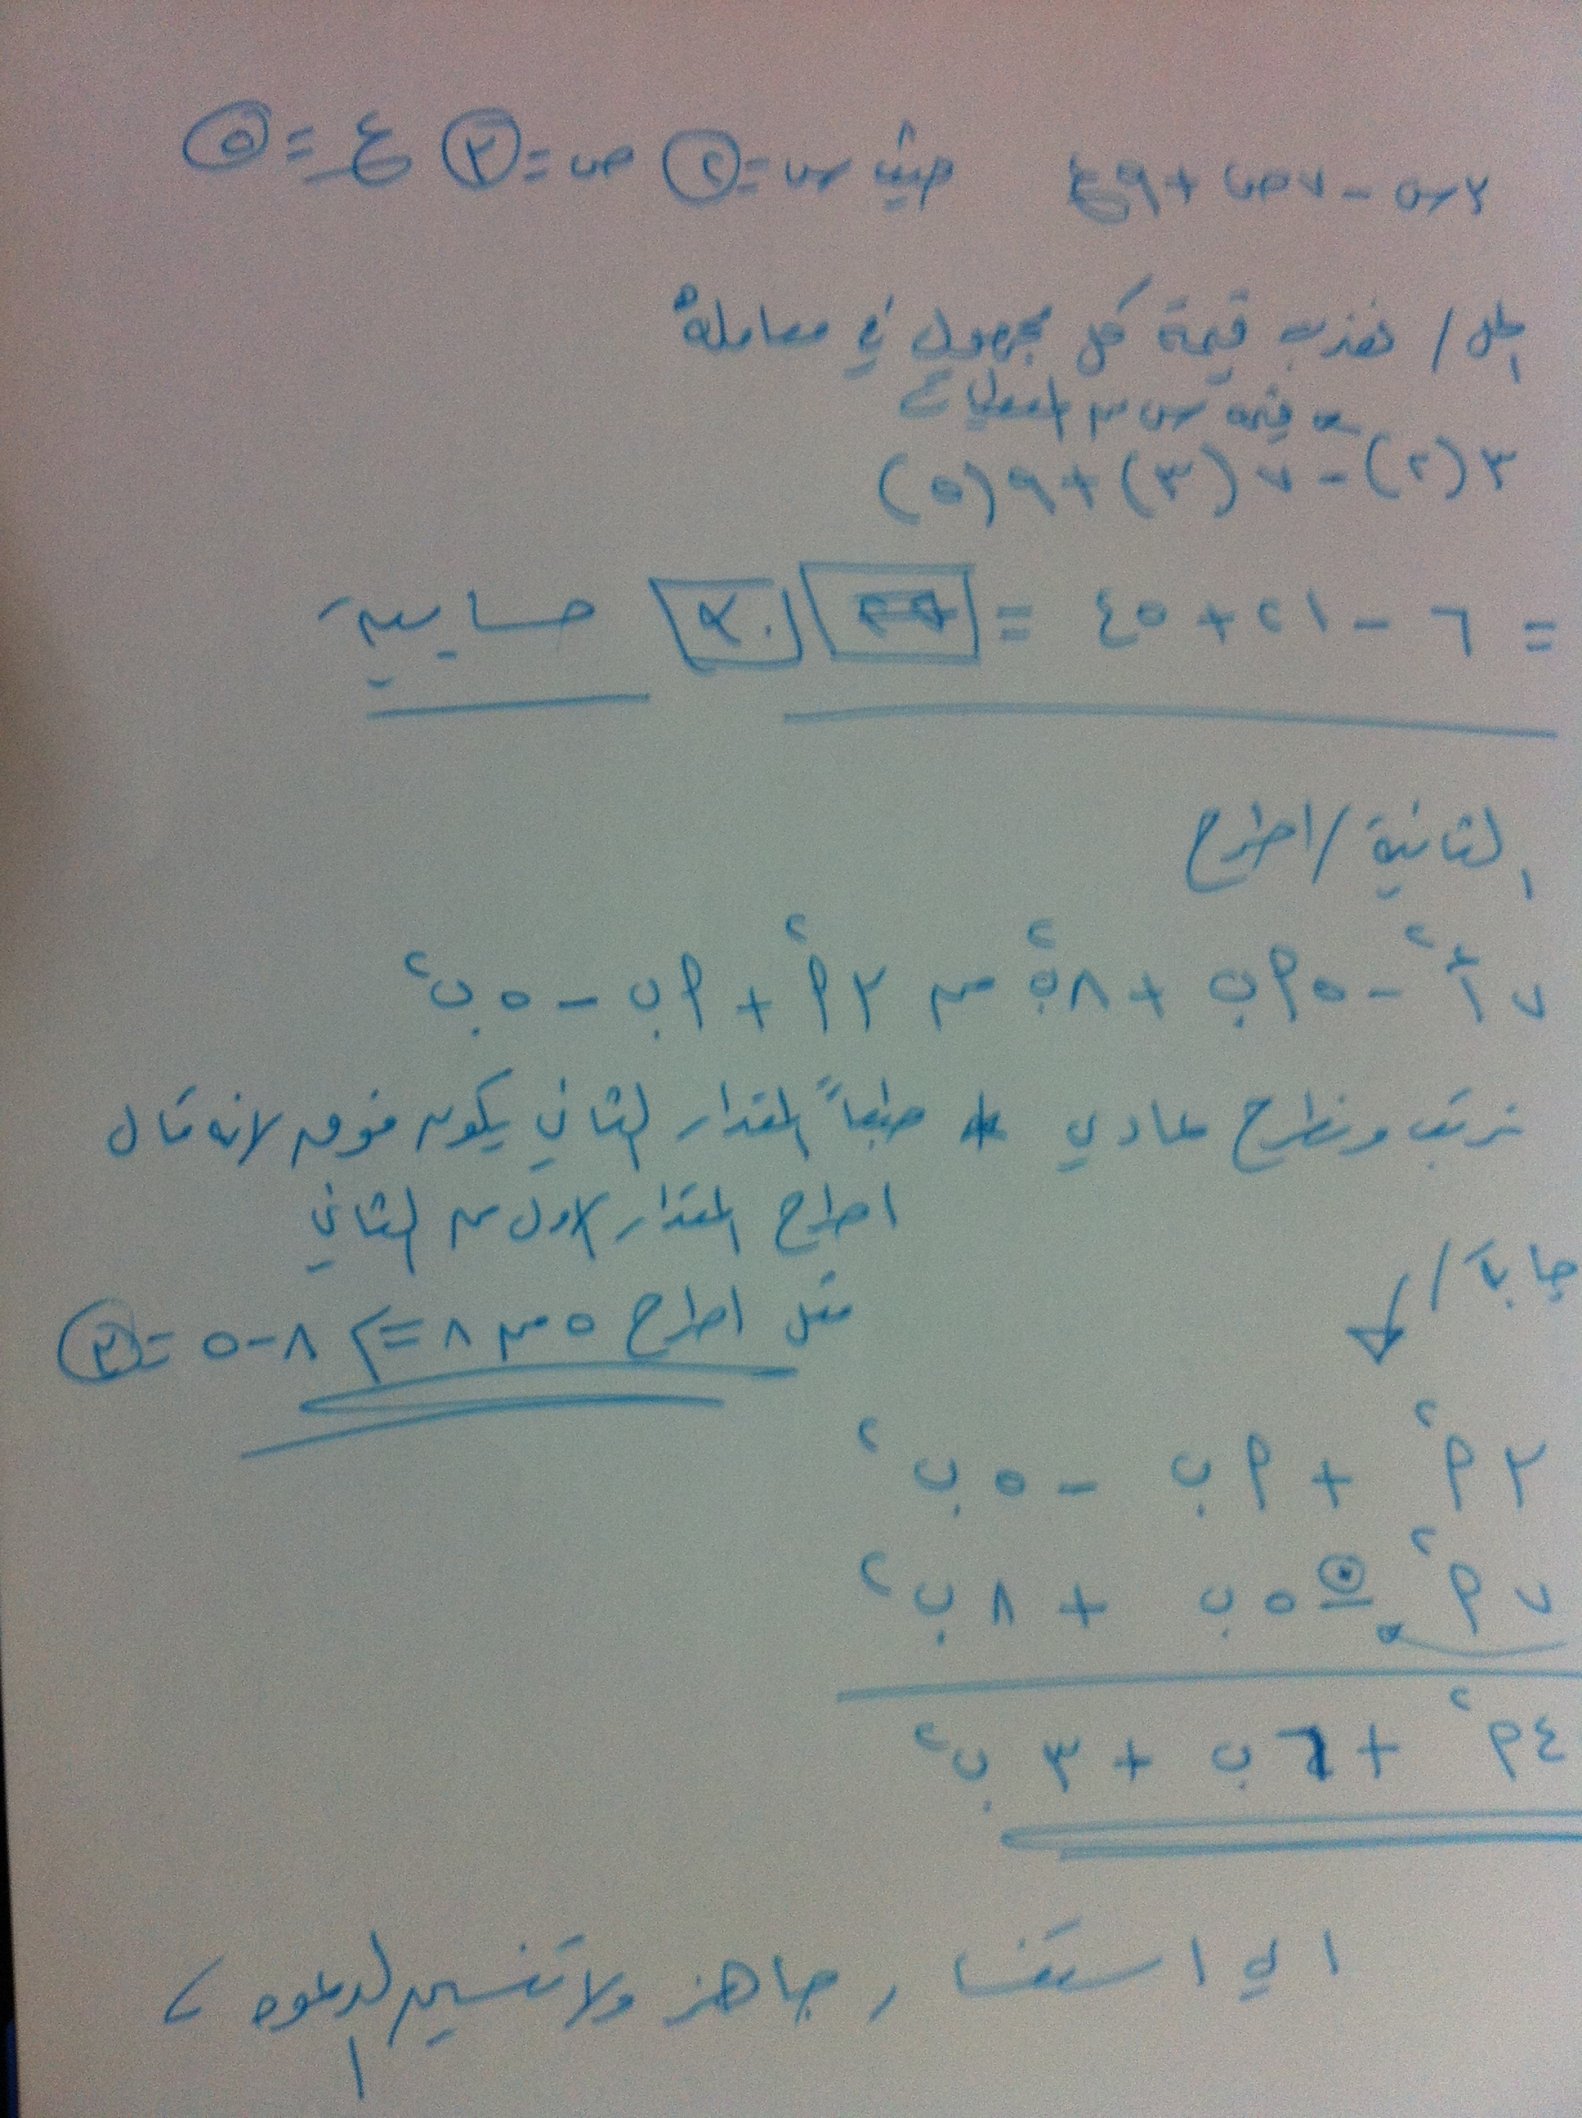 ٣س - ٧ص + ٩ع حيث س = ٢ ص = ٣ ع = ٥
الحل / نضرب قيمة كل مجهول في معامله
قيمة س من المعطيات
٣(٢) - ٧(٣) + ٩(٥)
= ٦ - ٢١ + ٤٥ = ٣٠ حسابية
الثانية / اطرح
٧أ٢ - ٥أب + ٨ب٢ من ٣أ٢ + أب - ٥ب٢
نرتب ونطرح عادي * طبعاً المقدار الثاني يكون فوق لانه قال
اطرح المقدار الاول من الثاني
مثل اطرح ٥ من ٨ => ٨ - ٥ = ٣
جابة /
٣أ٢ + أب - ٥ب٢
٧أ٢ - ٥ب + ٨ب٢
٤أ٢ + ٦ب + ٣ب٢
اي استفسار جاهز ولا تنسين الدعوه